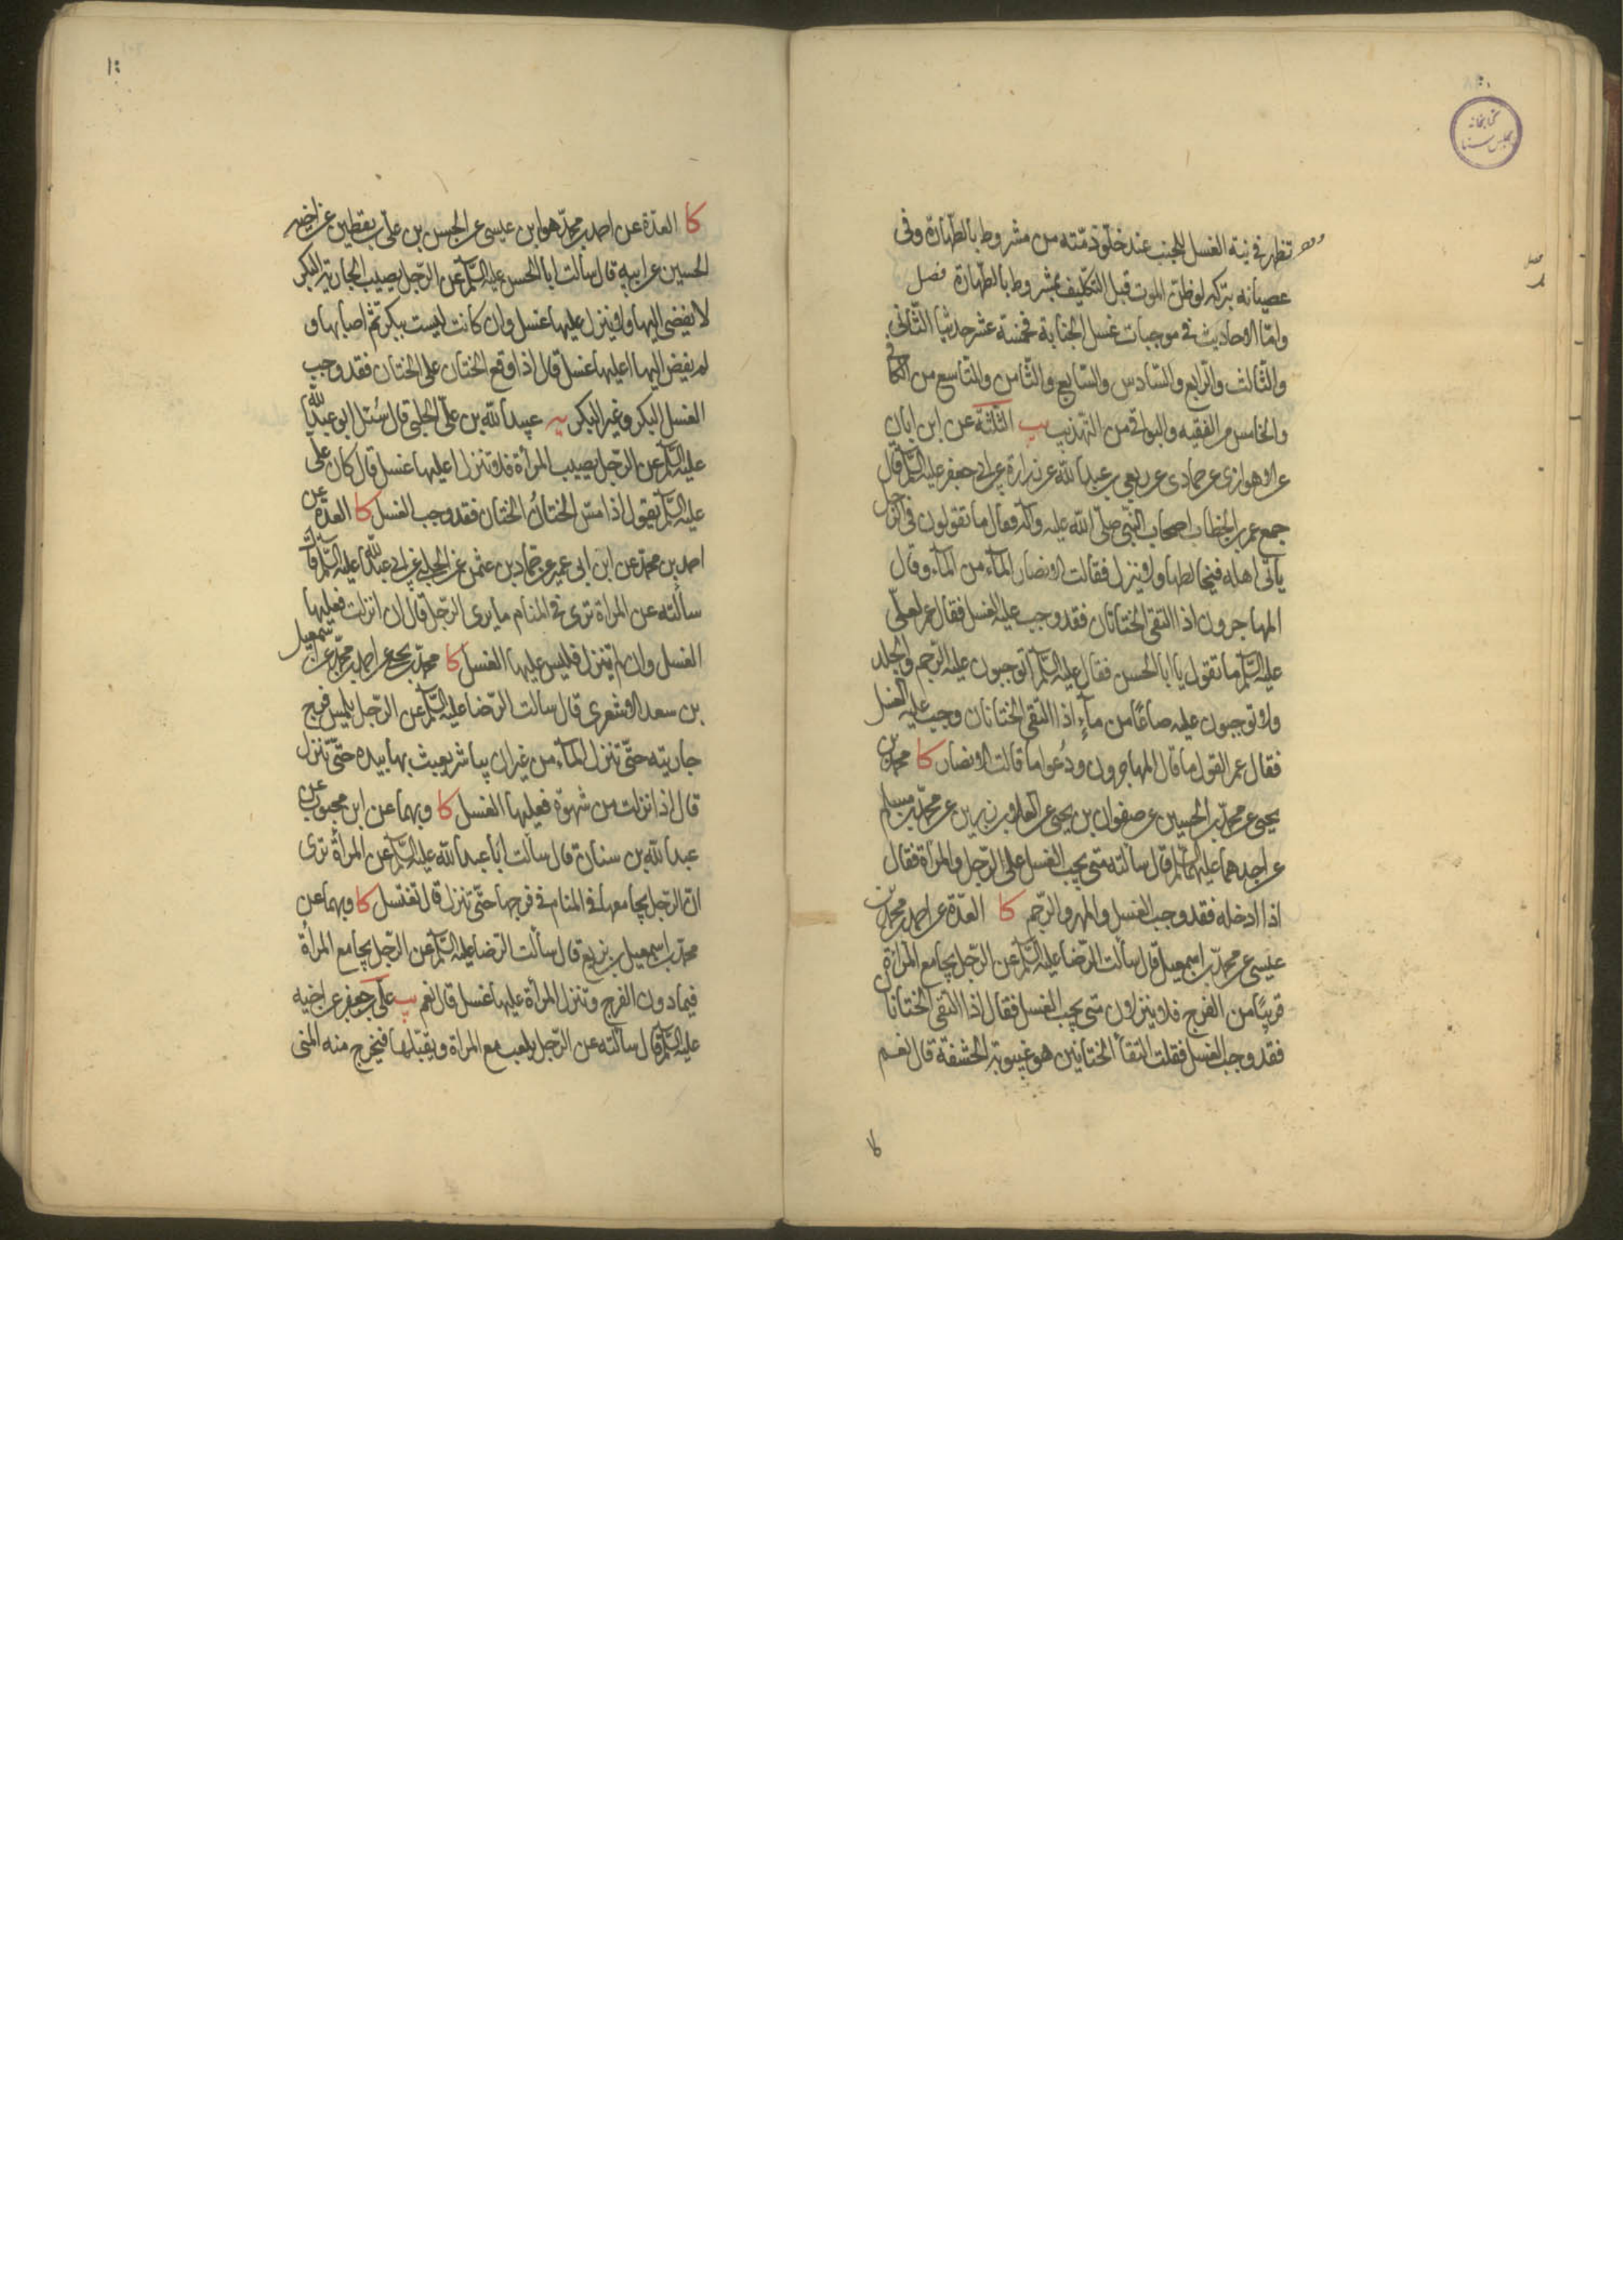 تظهر في نية الغسل للجنب عند خلو ذمته من مشروط بالطهارة وفي
عصيانه بتركه لو ظن الموت قبل التكليف بمشروط بالطهارة فصل
واما الاحاديث في موجبات غسل الجنابة فخمسة عشر حديثا الثاني
والثالث والرابع والسادس والسابع والثامن والتاسع من الكافي
والخامس من الفقيه والبواقي من التهذيب يب الثلثة عن ابن ابان
عن الاهوازي عن حماد عن ربعي بن عبد الله عن زرارة عن ابي جعفر عليه السلم قال
جمع عمر بن الخطاب اصحاب النبي صلى الله عليه وآله فقال ما تقولون في الرجل
يأتي اهله فيخالطها ولا ينزل فقالت الانصار المآء من المآء وقال
المهاجرون اذا التقى الختانان فقد وجب عليه الغسل فقال عمر لعلي
عليه السلم ما تقول يا ابا الحسن فقال عليه السلم أتوجبون عليه الرجم والجلد
ولا توجبون عليه صاعًا من مآء اذا التقى الختانان وجب عليه الغسل
فقال عمر القول ما قال المهاجرون ودعوا ما قالت الانصار كا محمد بن
يحيى عن محمد بن الحسين عن صفوان بن يحيى عن العلا بن رزين عن محمد بن مسلم
عن احدهما عليهما السلم قال سألته متى يجب الغسل على الرجل والمرأة فقال
اذا ادخله فقد وجب الغسل والمهر والرجم كا العدة عن احمد بن محمد بن
عيسى عن محمد بن اسمعيل قال سألت الرضا عليه السلم عن الرجل يجامع المرأة
قريبًا من الفرج فلا ينزلان متى يجب الغسل فقال اذا التقى الختانان
فقد وجب الغسل فقلت التقأ الختانين هو غيبوبة الحشفة قال نعم
كا
كا العدة عن احمد بن محمد هو ابن عيسى عن الحسن بن علي بن يقطين عن اخيه
الحسين عن ابيه قال سألت ابا الحسن عليه السلم عن الرجل يصيب الجارية البكر
لا يفضي اليها ولا ينزل عليها غسل وان كانت ليست ببكر ثم اصابها و
لم يفض اليها اعليها غسل قال اذا وقع الختان على الختان فقد وجب
الغسل البكر وغير البكر يه عبيد الله بن علي الحلبي قال سُئل ابو عبد الله
عليه السلم عن الرجل يصيب المرأة فلا ينزل اعليها غسل قال كان علي
عليه السلم يقول اذا مس الختانُ الختان فقد وجب الغسل كا العدة عن
احمد بن محمد عن ابن ابي عمير عن حماد بن عثمن عن الحلبي عن ابي عبد الله عليه السلم قال
سألته عن المرأة ترى في المنام ما يرى الرجل قال ان انزلت فعليها
الغسل وان لم تنزل فليس عليها الغسل كا محمد بن يحيى عن احمد بن محمد عن اسمعيل
بن سعد الاشعري قال سالت الرضا عليه السلم عن الرجل يلمس فرج
جاريته حتى تنزل المآء من غير ان يباشر يعبث بها بيده حتى تنزل
قال اذا نزلت من شهوة فعليها الغسل كا وبهما عن ابن محبوب عن
عبد الله بن سنان قال سألت ابا عبد الله عليه السلم عن المرأة ترى
ان الرجل يجامعها في المنام في فرجها حتى تنزل قال تغتسل كا وبهما عن
محمد بن اسمعيل بن بزيع قال سألت الرضا عليه السلم عن الرجل يجامع المرأة
فيما دون الفرج وتنزل المرأة عليها غسل قال نعم يب علي بن جعفر عن اخيه
عليه السلم قال سألته عن الرجل يلعب مع المرأة ويقبلها فيخرج منه المني